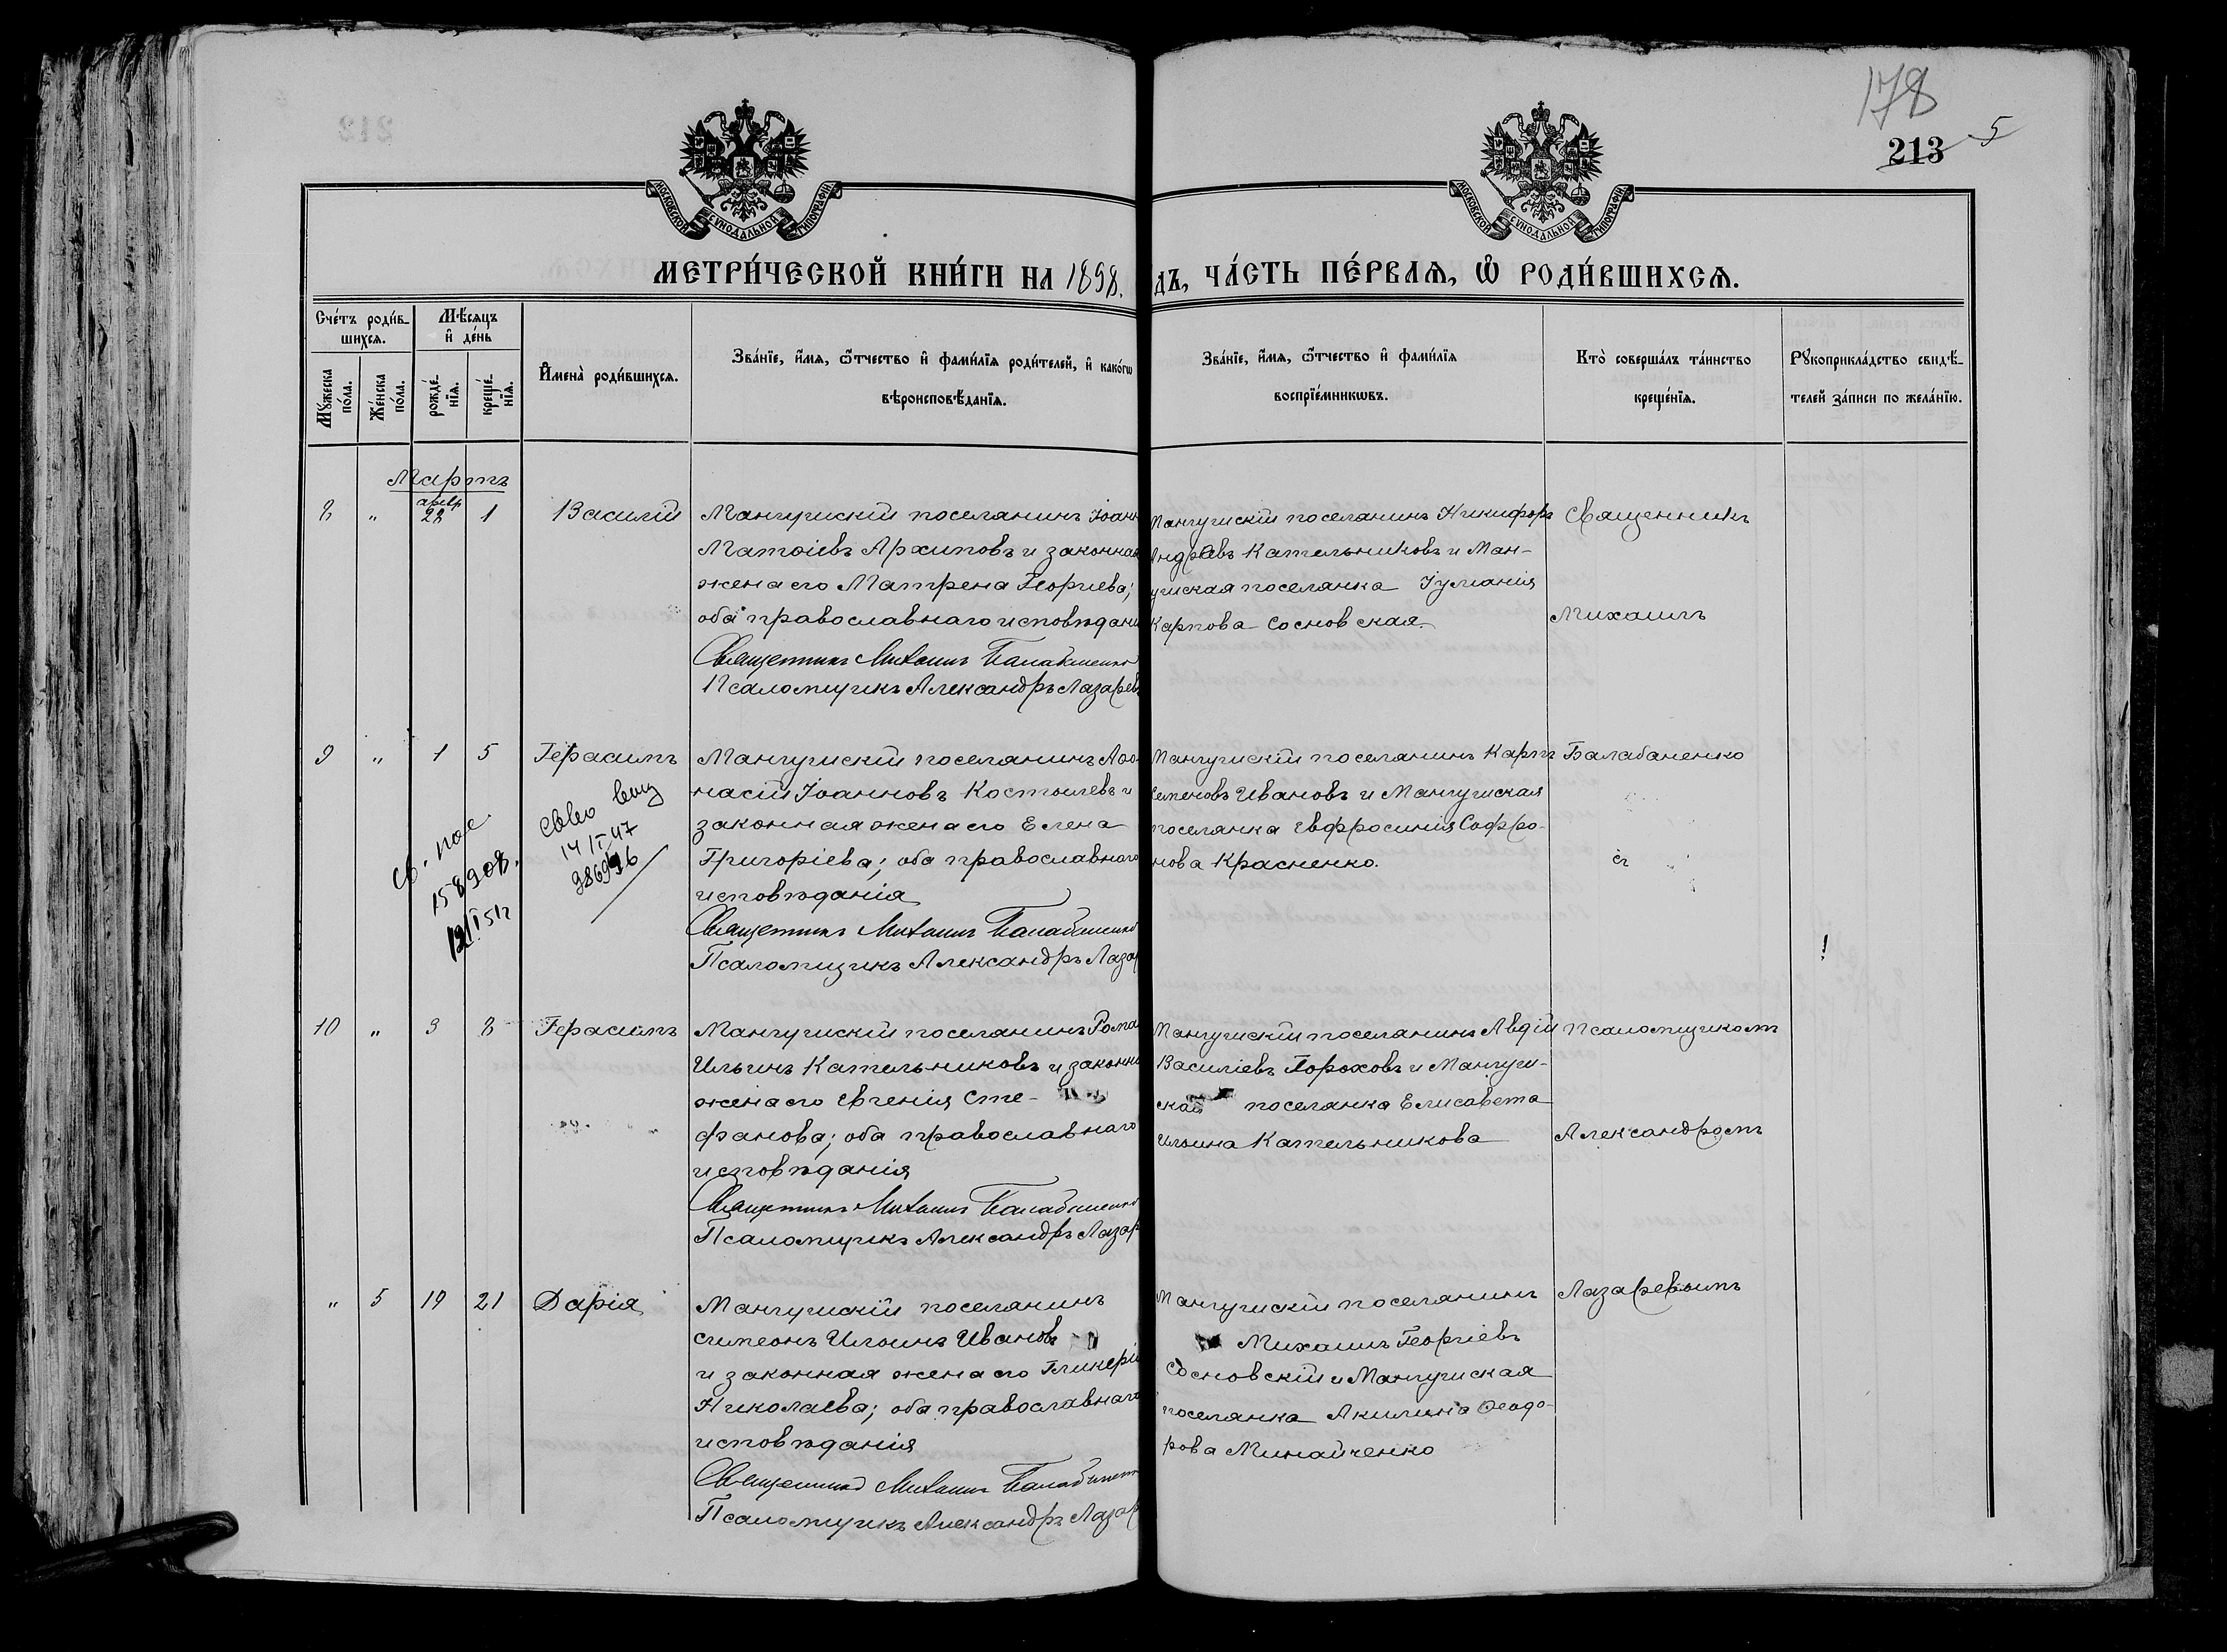 178
213 5
МОСКОВСКОЙ СѴНОДАЛЬНОЙ ТИПОГРАФІИ
МОСКОВСКОЙ СѴНОДАЛЬНОЙ ТИПОГРАФІИ
МЕТРИ́ЧЕСКОЙ КНИ́ГИ НА 1898. ДЪ, ЧА́СТЬ ПЕ́РВАѦ, Ѡ҆ РОДИ́ВШИХСѦ.
Сче́тъ роди́в-
шихсѧ.
Мꙋ́жеска по́ла.
Же́нска по́ла.
Мѣ́сѧцъ
и҆ де́нь
рожде́-нїѧ.
креще́-нїѧ.
И҆мена̀ роди́вшихсѧ.
Зва́нїе, и҆́мѧ, ѻ҆́тчество и҆ фами́лїѧ роди́телей, и҆ како́гѡ
вѣроисповѣ́данїѧ.
Зва́нїе, и҆́мѧ, ѻ҆́тчество и҆ фами́лїѧ
воспрїе́мникѡвъ.
Кто̀ соверша́лъ та́инство
креще́нїѧ.
Рꙋкоприкла́дство свидѣ́-
телей за́писи по жела́нїю.
Мартъ
8 " февр 28 1 Василій
Мангушскій поселянинъ Іоанн
Матѳіевъ Архиповъ и законная
жена его Матрена Георгиева;
оба православнаго исповѣдани
Священникъ Михаилъ Балабаненко
Псаломщикъ Александръ Лазарев
Мангушскій поселянинъ Никифоръ
Андреевъ Кательниковъ и Ман-
ушская поселянка Іуліанія
Карпова Сосновская.
Священникъ
Михаилъ
9 " 1 5 Герасимъ
св. пос.
158908.
14/I 47
Мангушскій поселянинъ Аѳа-
насій Іоанновъ Костылевъ и
законная жена его Елена
Григоріева; оба православнаго
исповѣданія
Священникъ Михаилъ Балабаненко
Псаломщикъ Александръ Лаза
Мангушскій поселянинъ Карпъ
Семеновъ Ивановъ и Мангушская
поселянка Евфросинія Софро-
нова Красненко.
Балабаненко
съ
10 " 3 8 Герасимъ
Мангушскій поселянинъ Рома
Ильинъ Кательниковъ и законна
жена его Евгенія Сте-
фанова; оба православнаго
исповѣданія
Священникъ Михаилъ Балабаненко
Псаломщикъ Александръ Лазар
Мангушскій поселянинъ Авдій
Василіевъ Гороховъ и Мангуш-
ская поселянка Елисавета
Ильина Кательникова
Псаломщикомъ
Александромъ
" 5 19 21 Дарія
Мангушскій поселянинъ
Симеонъ Ильинъ Ивановъ
и законная жена его Гликерія
Николаева; оба православнаго
исповѣданія
Священникъ Михаилъ Балабаненк
Псаломщикъ Александръ Лазар
Мангушскій поселянинъ
Михаилъ Георгіевъ
Сосновскій и Мангушская
поселянка Акилина Ѳеодо-
рова Минайченко
Лазаревымъ